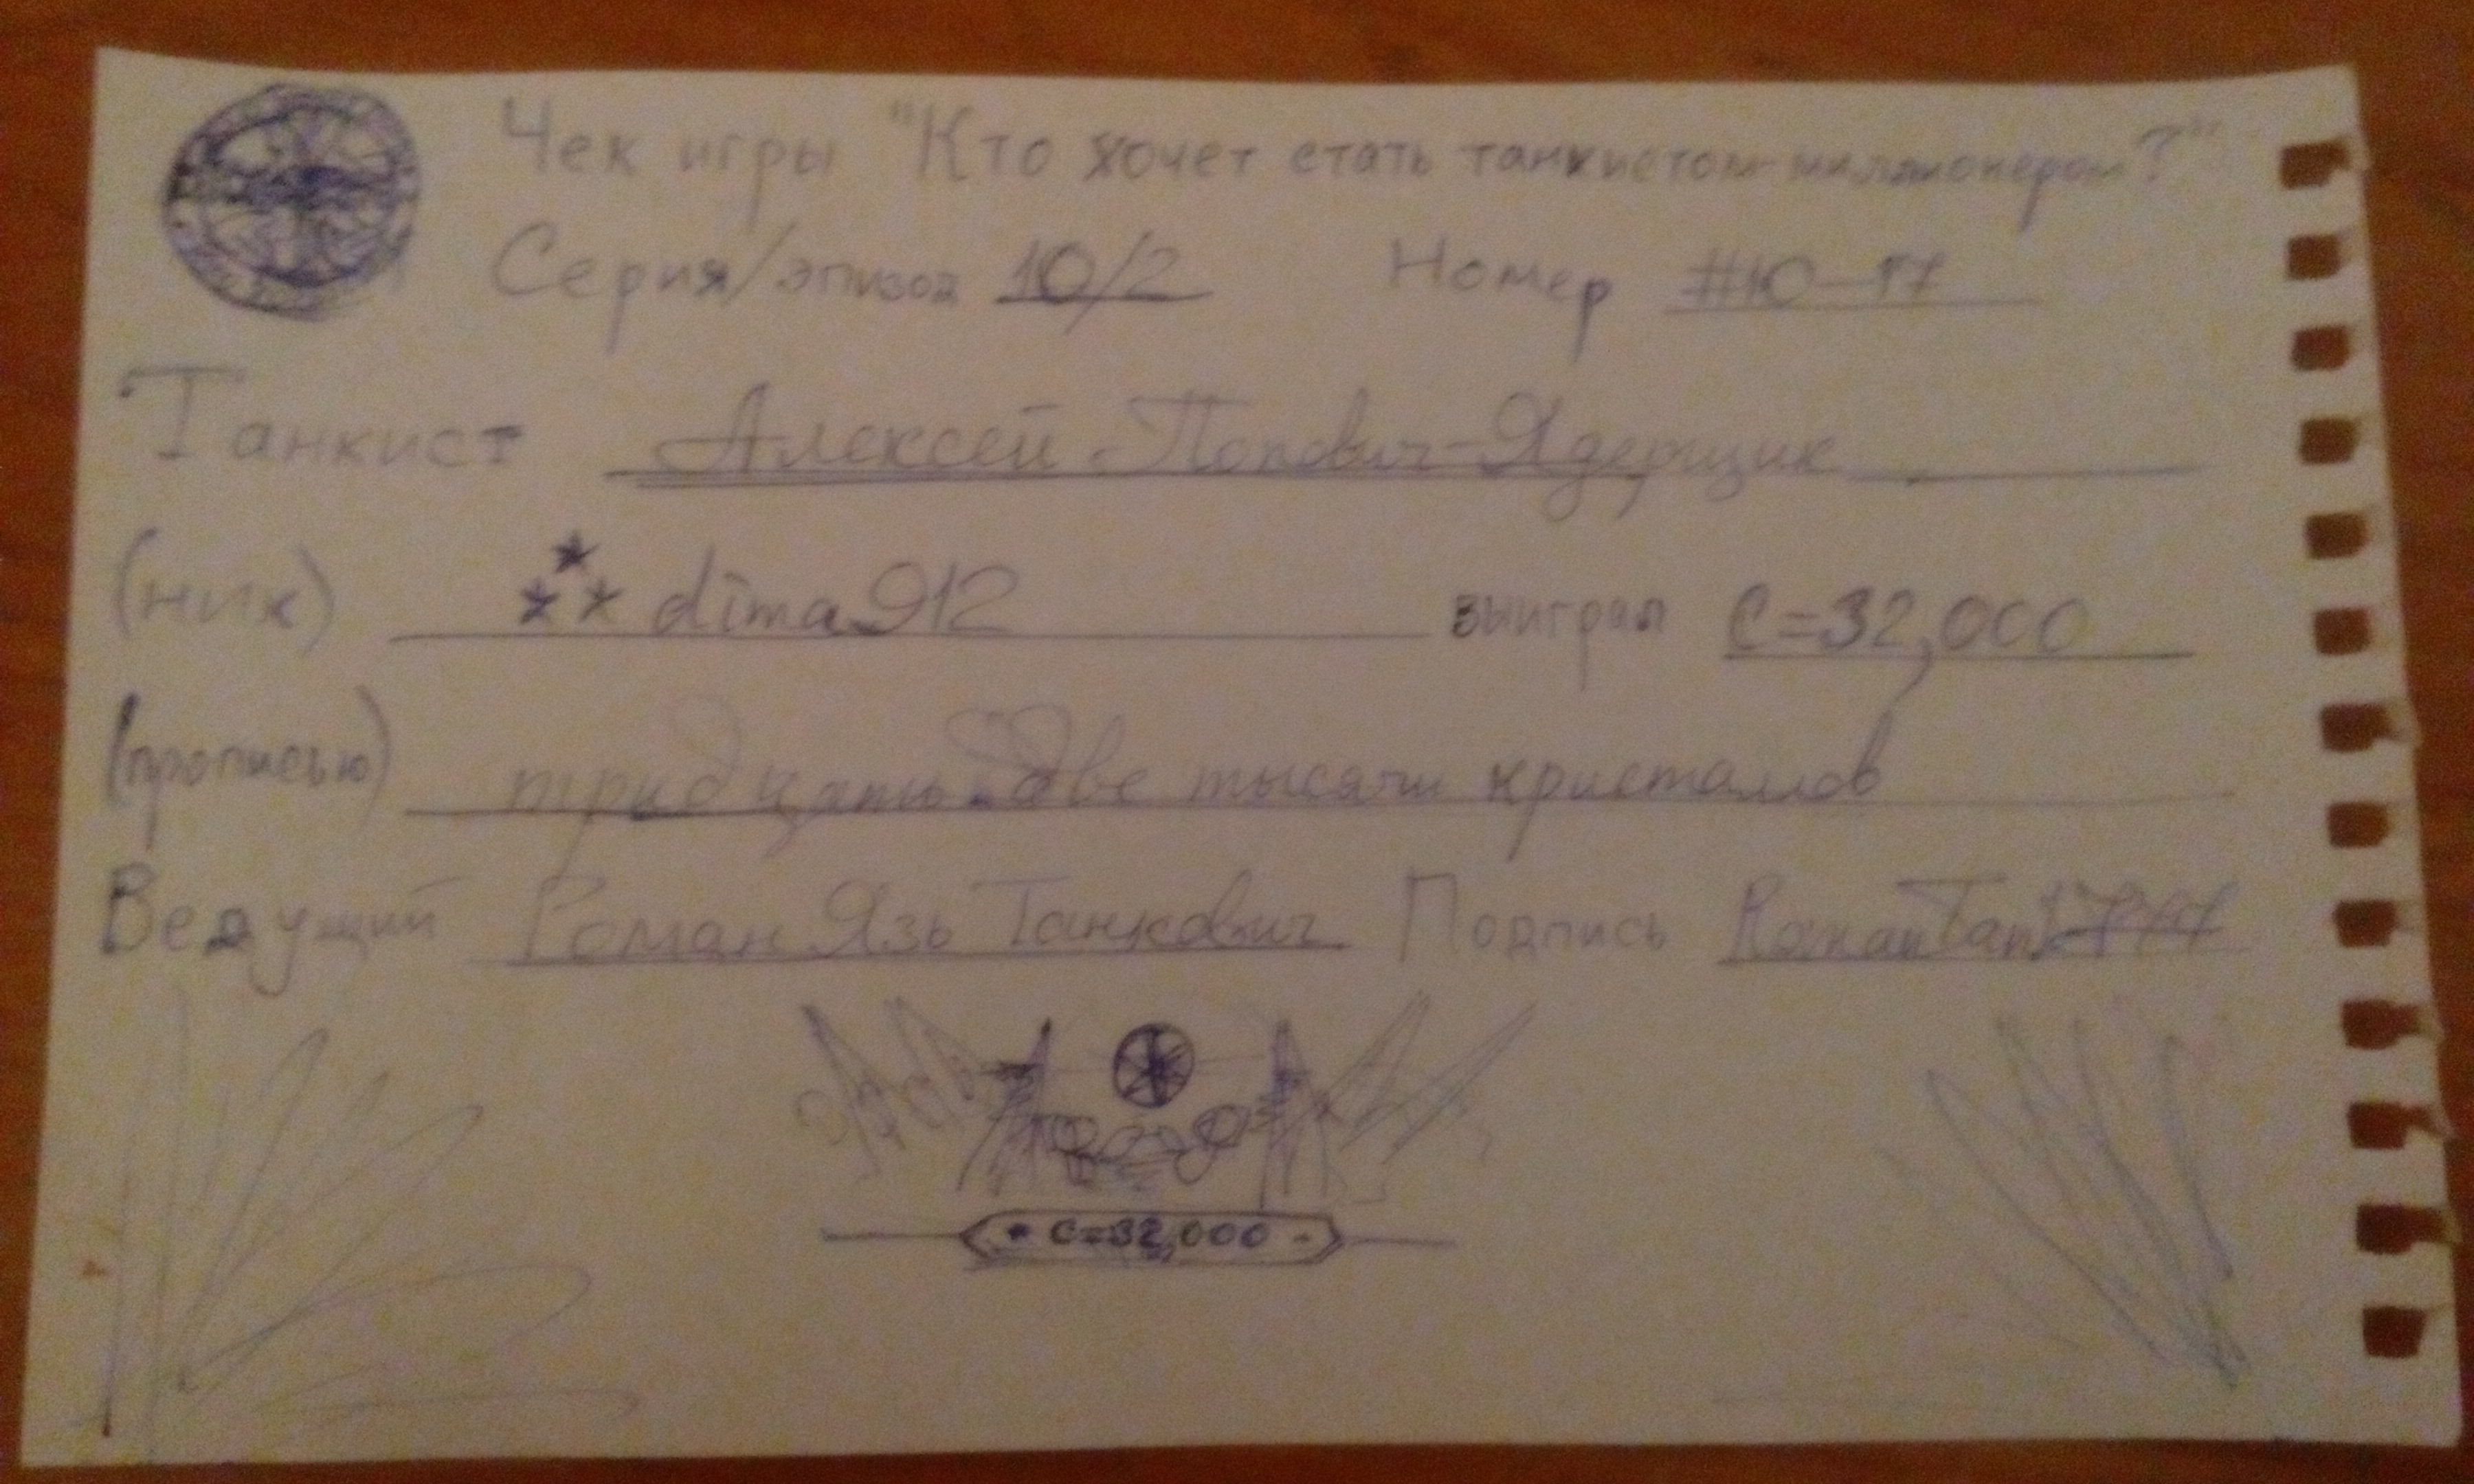 Чек игры "Кто хочет стать танкистом-миллионером?"
Серия/эпизод 10/2 Номер #10-17
Танкист Алексей-Попович-Ядерщик
(ник) *** dima912 выиграл C=32,000
(прописью) тридцать две тысячи кристаллов
Ведущий Роман Язь Танкович Подпись
C=32,000